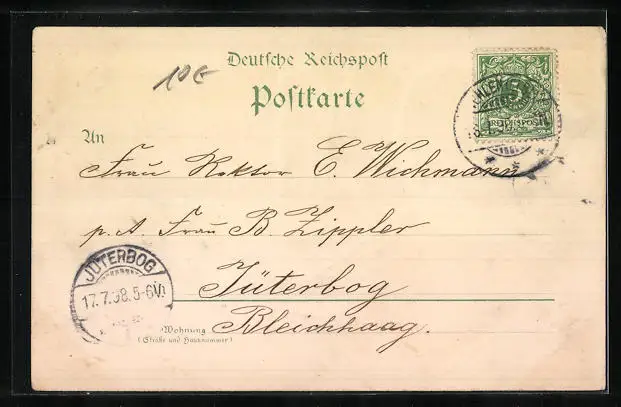 Deutsche Reichspost
10€
Postkarte
5
REICHSPOST
An
Frau Rektor E. Wichmann
p. A. Frau B. Zippler
JÜTERBOG
17.7.98.5-6N.
Jüterbog
Wohnung
(Straße und Hausnummer)
Bleichhaag.